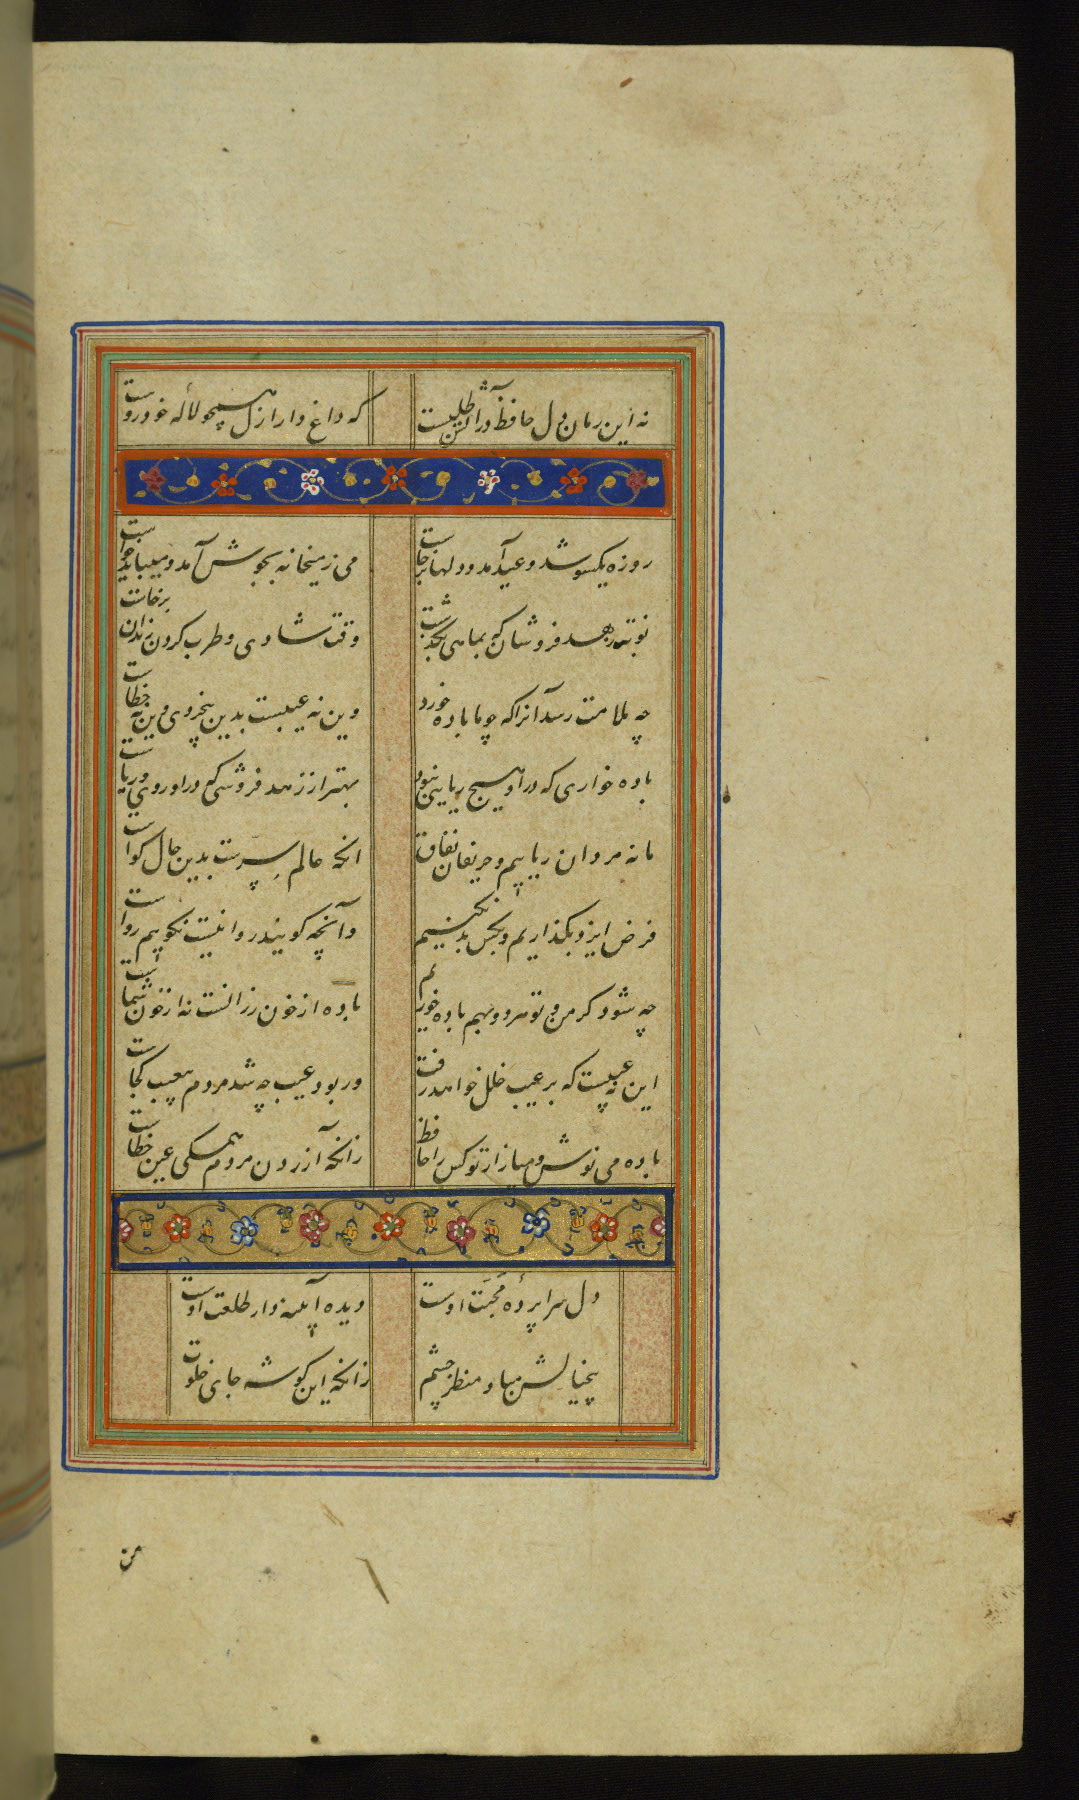 نه این زمان دل حافظ در آتش طلبست که داغ دار ازل همچو لاله خودروست
روزه یکسو شد و عید آمد و دلها برخاست می ز میخانه بجوش آمد و میباید خواست
نوبت زهد فروشان که بماهی بگذشت وقت شادی و طرب کردن رندان برخاست
چه ملامت رسد آنرا که چو ما باده خورد وین نه عیبست بدین بیخردی وین نه خطاست
باده خواری که در او هیچ ریایی نبود بهتر از زهد فروشی که در او روی و ریاست
ما نه مردان ریاییم و حریفان نفاق انکه عالم سرست بدین حال کواست
فرض ایزد بکذاریم و بکس بد نکنیم وآنچه کویند روا نیست نکوییم رواست
چه شود کر من و تو هر دو بهم باده خوریم باده از خون رزانست نه از خون شماست
این نه عیبست که بر عیب خلل خواهد رفت ور بود عیب چه شد مردم بیعیب کجاست
باده می نوش و میازار تو کس را حافظ زانکه آزردن مردم همکی عین خطاست
دل سراپرده محبت اوست دیده آیینه دار طلعت اوست
بیخیالش مباد منظر چشم زانکه این کوشه جای خلوت
من